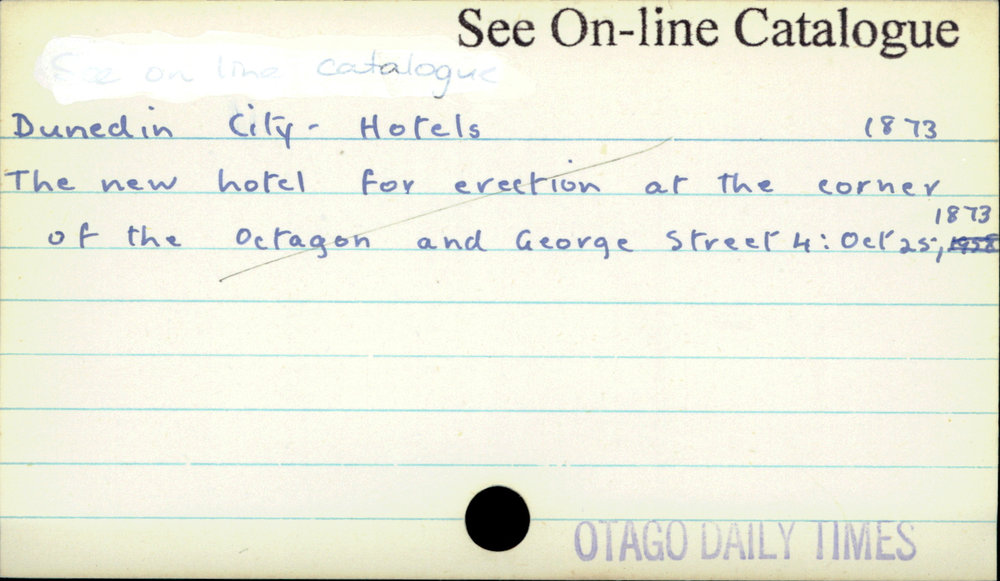 See On-line Catalogue
See on line catalogue
Dunedin City - Hotels 1873
The new hotel for erection at the corner
1873
of the Octagon and George Street 4: Oct 25, 1958
OTAGO DAILY TIMES